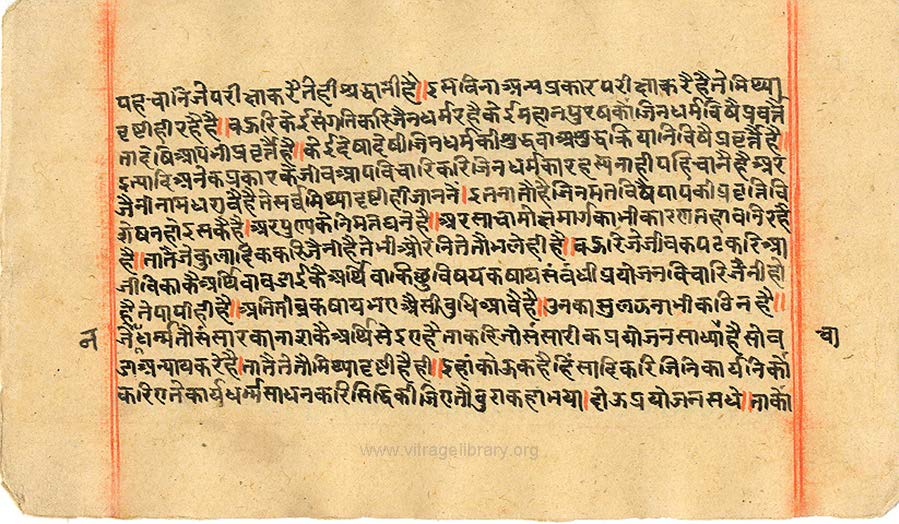 पहचानि जे परीक्षा करै तेही श्रद्धानी है॥ इस विना अन्य प्रकार परीक्षा करै है ते मिथ्या
दृष्टी ही रहै है॥ बऊरि केई संगति करि जैनधर्म रहै केई महान पुरषकों जिनधर्मविषै प्रवर्त्त
ता देषि आप भी प्रवृर्त्तै है॥ केई देषादेषी जिनधर्म की शुद्ध वा अशुद्ध क्रियानिविषै प्रवृर्त्तै है॥
इत्यादि अनेक प्रकार के जीव आप विचारि करि जिनधर्म का रहस्य नाही पहिचानै है अर
जैनी नाम धरावै है ते सर्व मिथ्यादृष्टी ही जानने॥ इतना तो है जिनमतविषै पाप की प्रवृत्ति वि
शेष न होइ सकै है॥ अर पुण्य के निमत घने है॥ अर साचा मोक्षमार्ग का भी कारण तहां बनि रहै
है॥ तातै जे कुलादिक करि जैनी है ते भी औरनि तै तौ भले ही है॥ बऊरि जे जीव कपट करि आ
जीविका कै अर्थि वा बडाई कै अर्थि वा किछु विषय कषाय संबंधी प्रयोजन विचारि जैनी हो
है ते पापी ही है॥ अति तीव्र कषाय भए औसी बुधि आवै है॥ उनका सुलझना भी कठिन है॥
जैनधर्म्म तौ संसार का नाश कै अर्थि सेइए है ताकरि जो संसारीक प्रयोजन साध्यो है सो ब
डा अन्याय करै है॥ तातै ते तौ मिथ्यादृष्टी है ही॥ इहां कोऊ कहै हिंसादि करि जिनि कार्यनि कों
करिए ते कार्य धर्म्म साधन करि सिद्धि कीजिए तौ बुरा कहा भया॥ दोऊ प्रयोजन सधे॥ ताकों
www.vitragelibrary.org